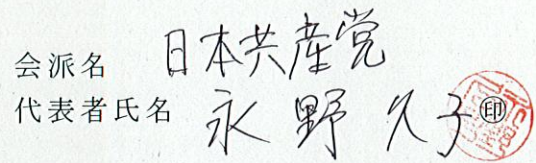 会派名 日本共産党
代表者氏名 永野 久子 ㊞